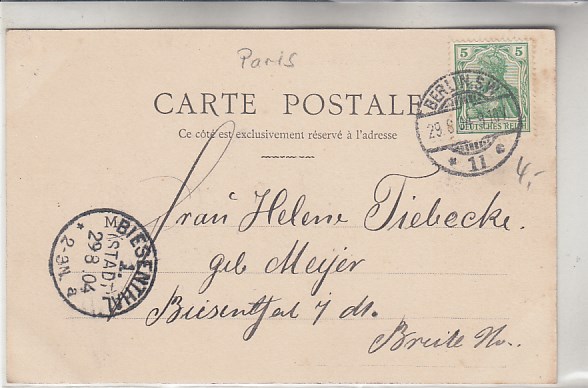 Paris
5 5
DEUTSCHES REICH
BERLIN. S.W.
29.8.
* 11 e
CARTE POSTALE
Ce côté est exclusivement réservé à l'adresse
4,-
Frau Helene Tiebecke.
geb Meijer
Biesenthal i/ M.
Breite
BIESENTHAL
1.
STADT
29.8.04
* 2-3N. a